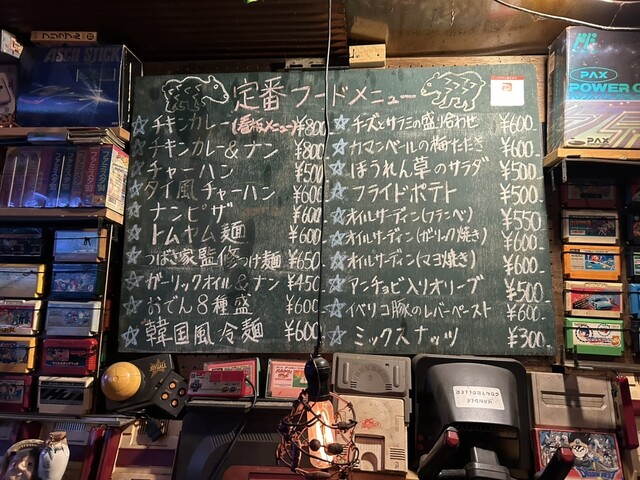 ASCII STICK
定番フードメニュー
☆チキンカレー(看板メニュー) ¥800
☆チキンカレー&ナン ¥800
☆チャーハン ¥500
☆タイ風チャーハン ¥600
☆ナンピザ ¥600
☆トムヤム麺 ¥600
☆つばき家監修つけ麺 ¥650
☆ガーリックオイル&ナン ¥450
☆おでん8種盛 ¥600
☆韓国風冷麺 ¥600
☆チーズとサラミの盛り合わせ ¥600.-
☆カマンベールの梅たたき ¥600.-
☆ほうれん草のサラダ ¥500.-
☆フライドポテト ¥500.-
☆オイルサーディン(フランベ) ¥550
☆オイルサーディン(ガーリック焼き) ¥600.-
☆オイルサーディン(マヨ焼き) ¥600.-
☆アンチョビ入りオリーブ ¥500.-
☆イベリコ豚のレバーペースト ¥600.-
☆ミックスナッツ ¥300.-
PAX
POWER G
PAX
HANDLE
CONTROLLER